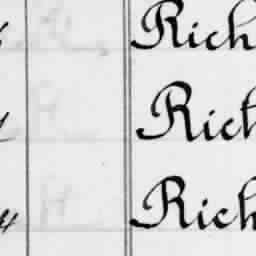 Rich
Rich
Rich